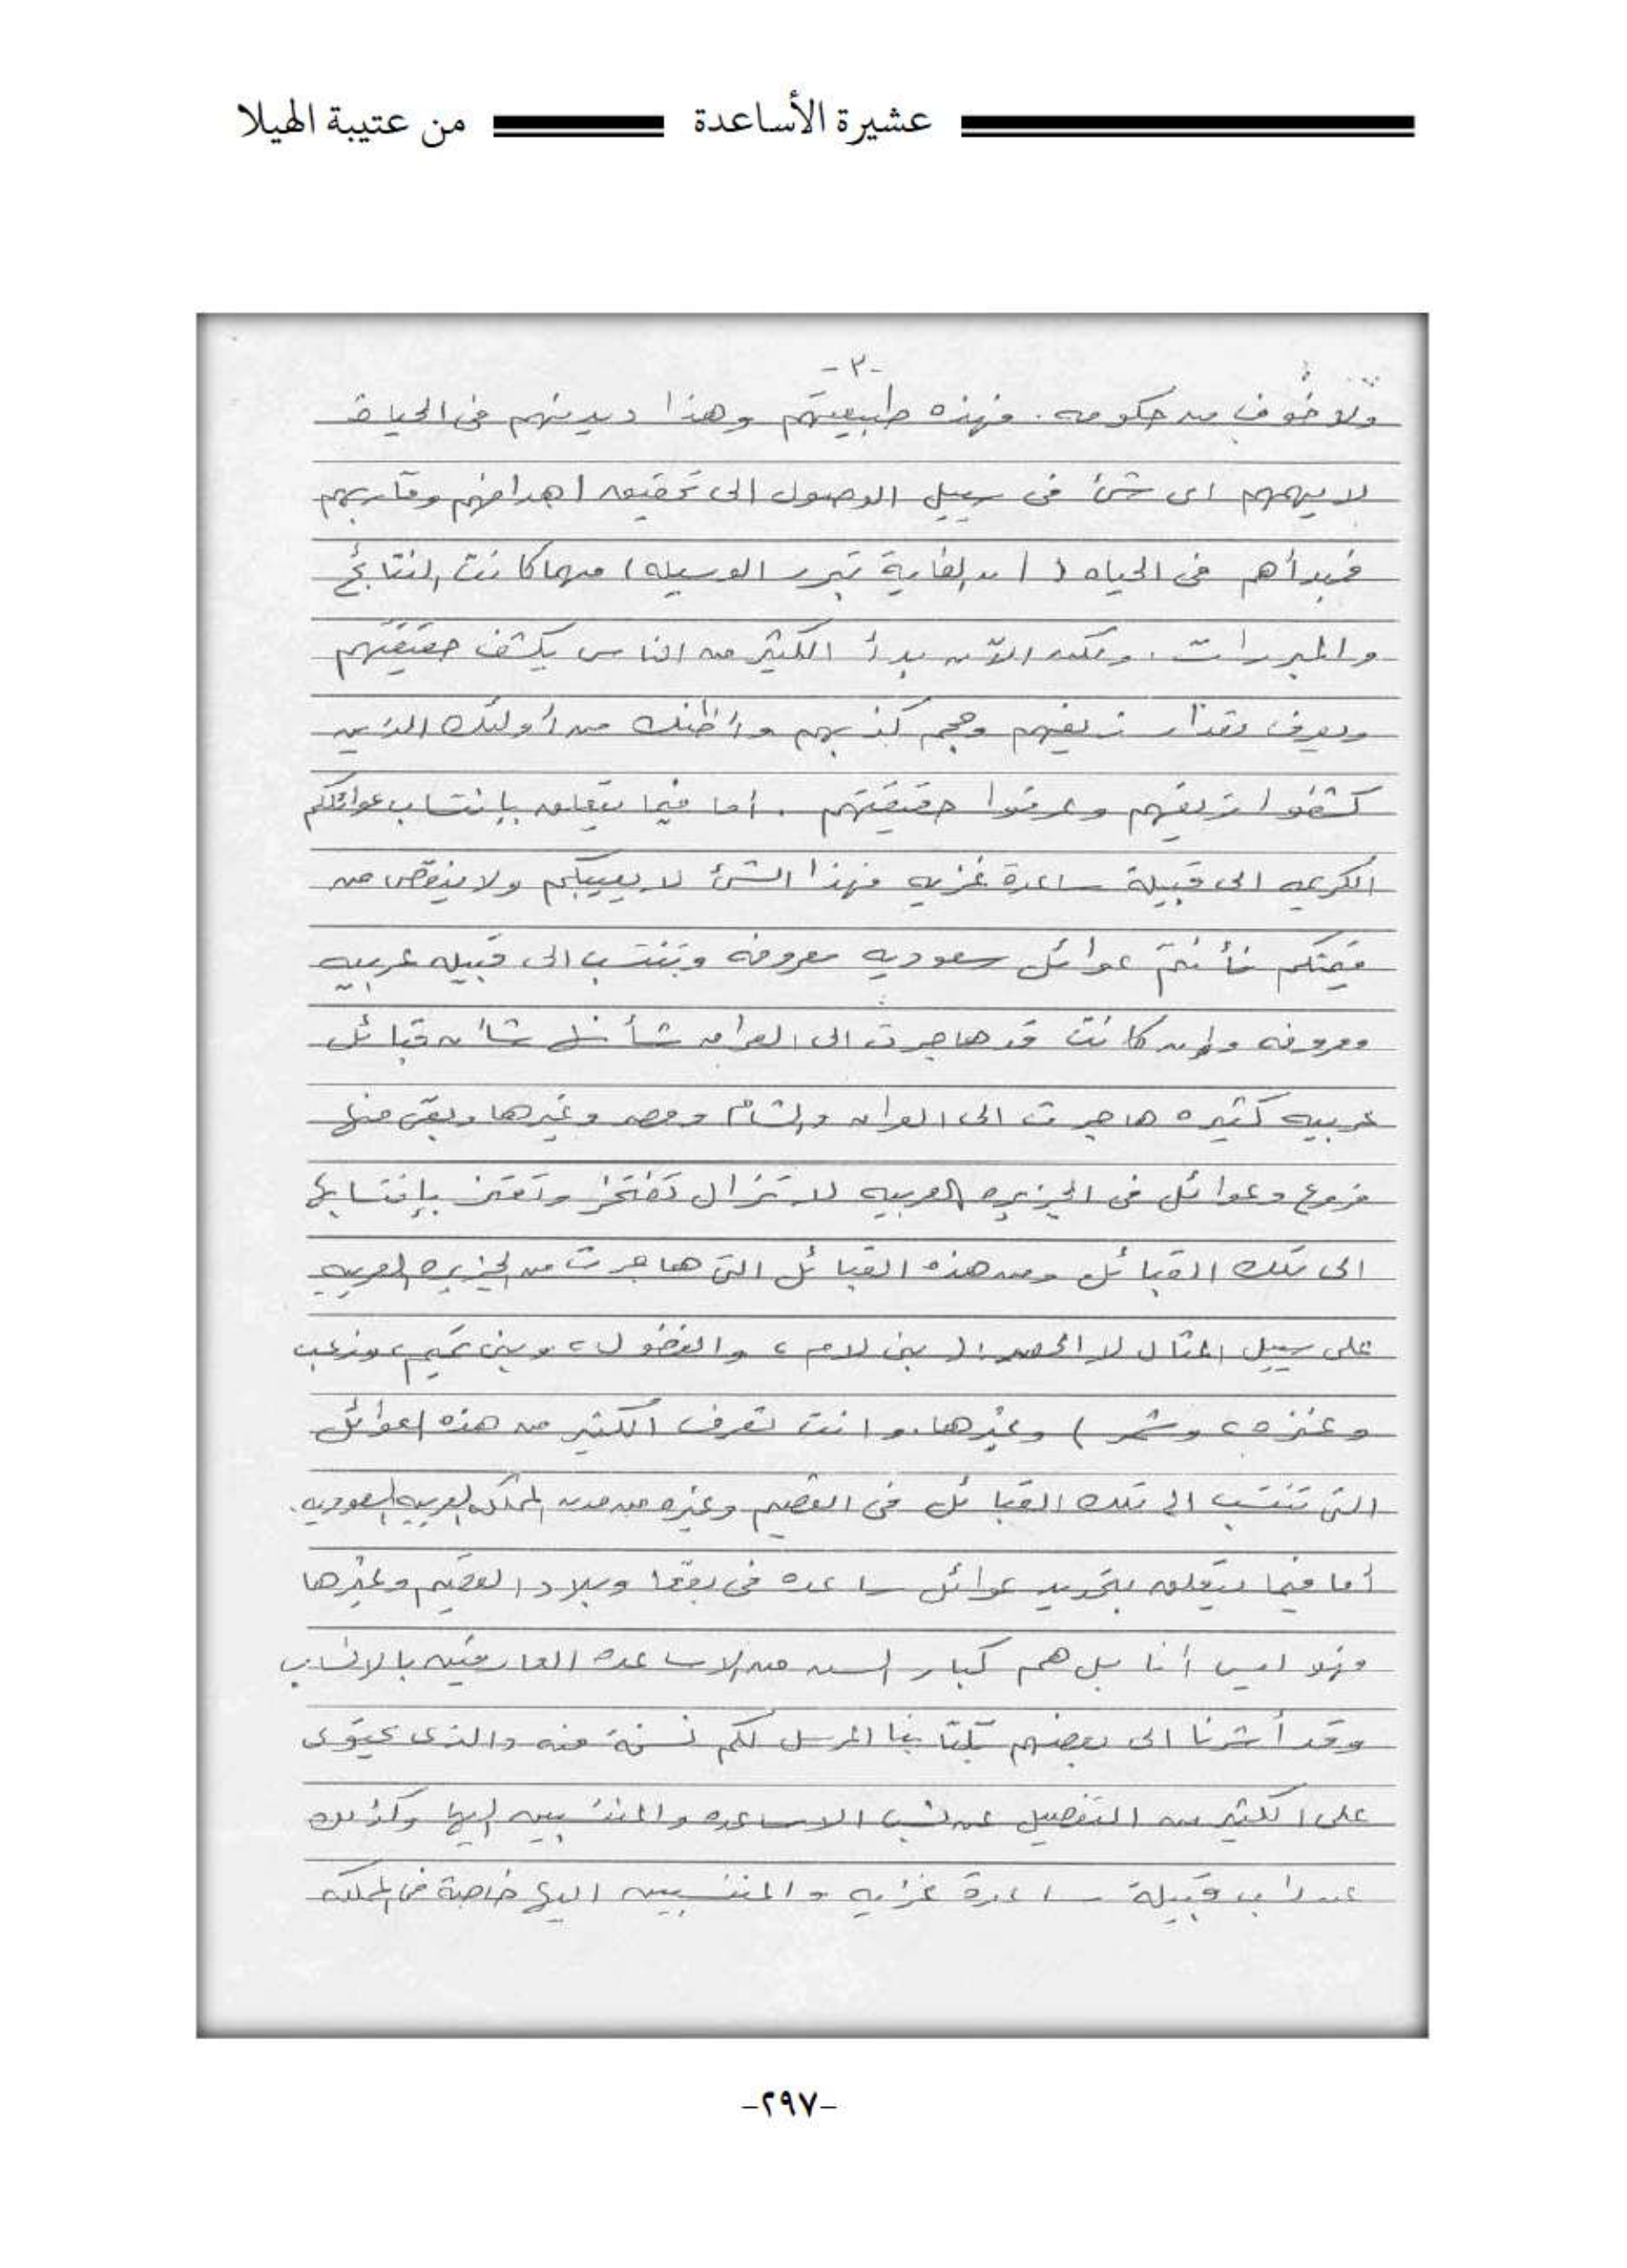 عشيرة الأساعدة من عتيبة الهيلا
-٢-
ولا خوف من حكومه. فهذه طبيعيتهم وهذا ديدنهم فى الحياة
لا يهمهم اى شئ فى سبيل الوصول الى تحقيق اهدافهم ومآربهم
فمبدأهم فى الحياه (ان الغاية تبرر الوسيله) مهما كانت النتائج
والمبررات. ولكن الآن بدأ الكثير من الناس يكشف حقيقتهم
ويعرف مقدار زيفهم وحجم كذبهم وأظنك من أولئك الذين
كشفوا زيفهم وعرفوا حقيقتهم. أما فيما يتعلق بإنتساب عوائلكم
الكريمه الى قبيلة ساعدة غزيه فهذا الشئ لا يعيبكم ولا ينقص من
قيمتكم فأنتم عوائل سعوديه معروفه وتنتسب الى قبيله عربيه
معروفه وإن كانت قد هاجرت الى العراق شأنها شأن قبائل
عربيه كثيره هاجرت الى العراق والشام ومصر وغيرها وبقى منها
فروع وعوائل فى الجزيره العربيه لا تزال تفتخر وتعتز بإنتسابها
الى تلك القبائل ومن هذه القبائل التى هاجرت من الجزيره العربيه
على سبيل المثال لا الحصر: (بنى لام، والفضول، وبنى تميم، وزعب
وعنزه، وشمر) وغيرها. وانت تعرف الكثير من هذه العوائل
التى تنتسب الى تلك القبائل فى القصيم وغيره من مدن المملكه العربيه السعوديه.
أما فيما يتعلق بتحديد عوائل ساعده فى بقعا وبلاد القصيم وغيرها
فهو ليس أنا بل هم كبار السن من الاساعده العارفين بالانساب
وقد أشرنا الى بعضهم بكتابنا المرسل لكم نسخة منه والذى يحتوى
على الكثير من التفصيل عن نسب الاساعده والمنتسبين إليها وكذلك
عن نسب قبيلة ساعدة غزيه والمنتسبين اليها خاصة فى المملكه
-٢٩٧-